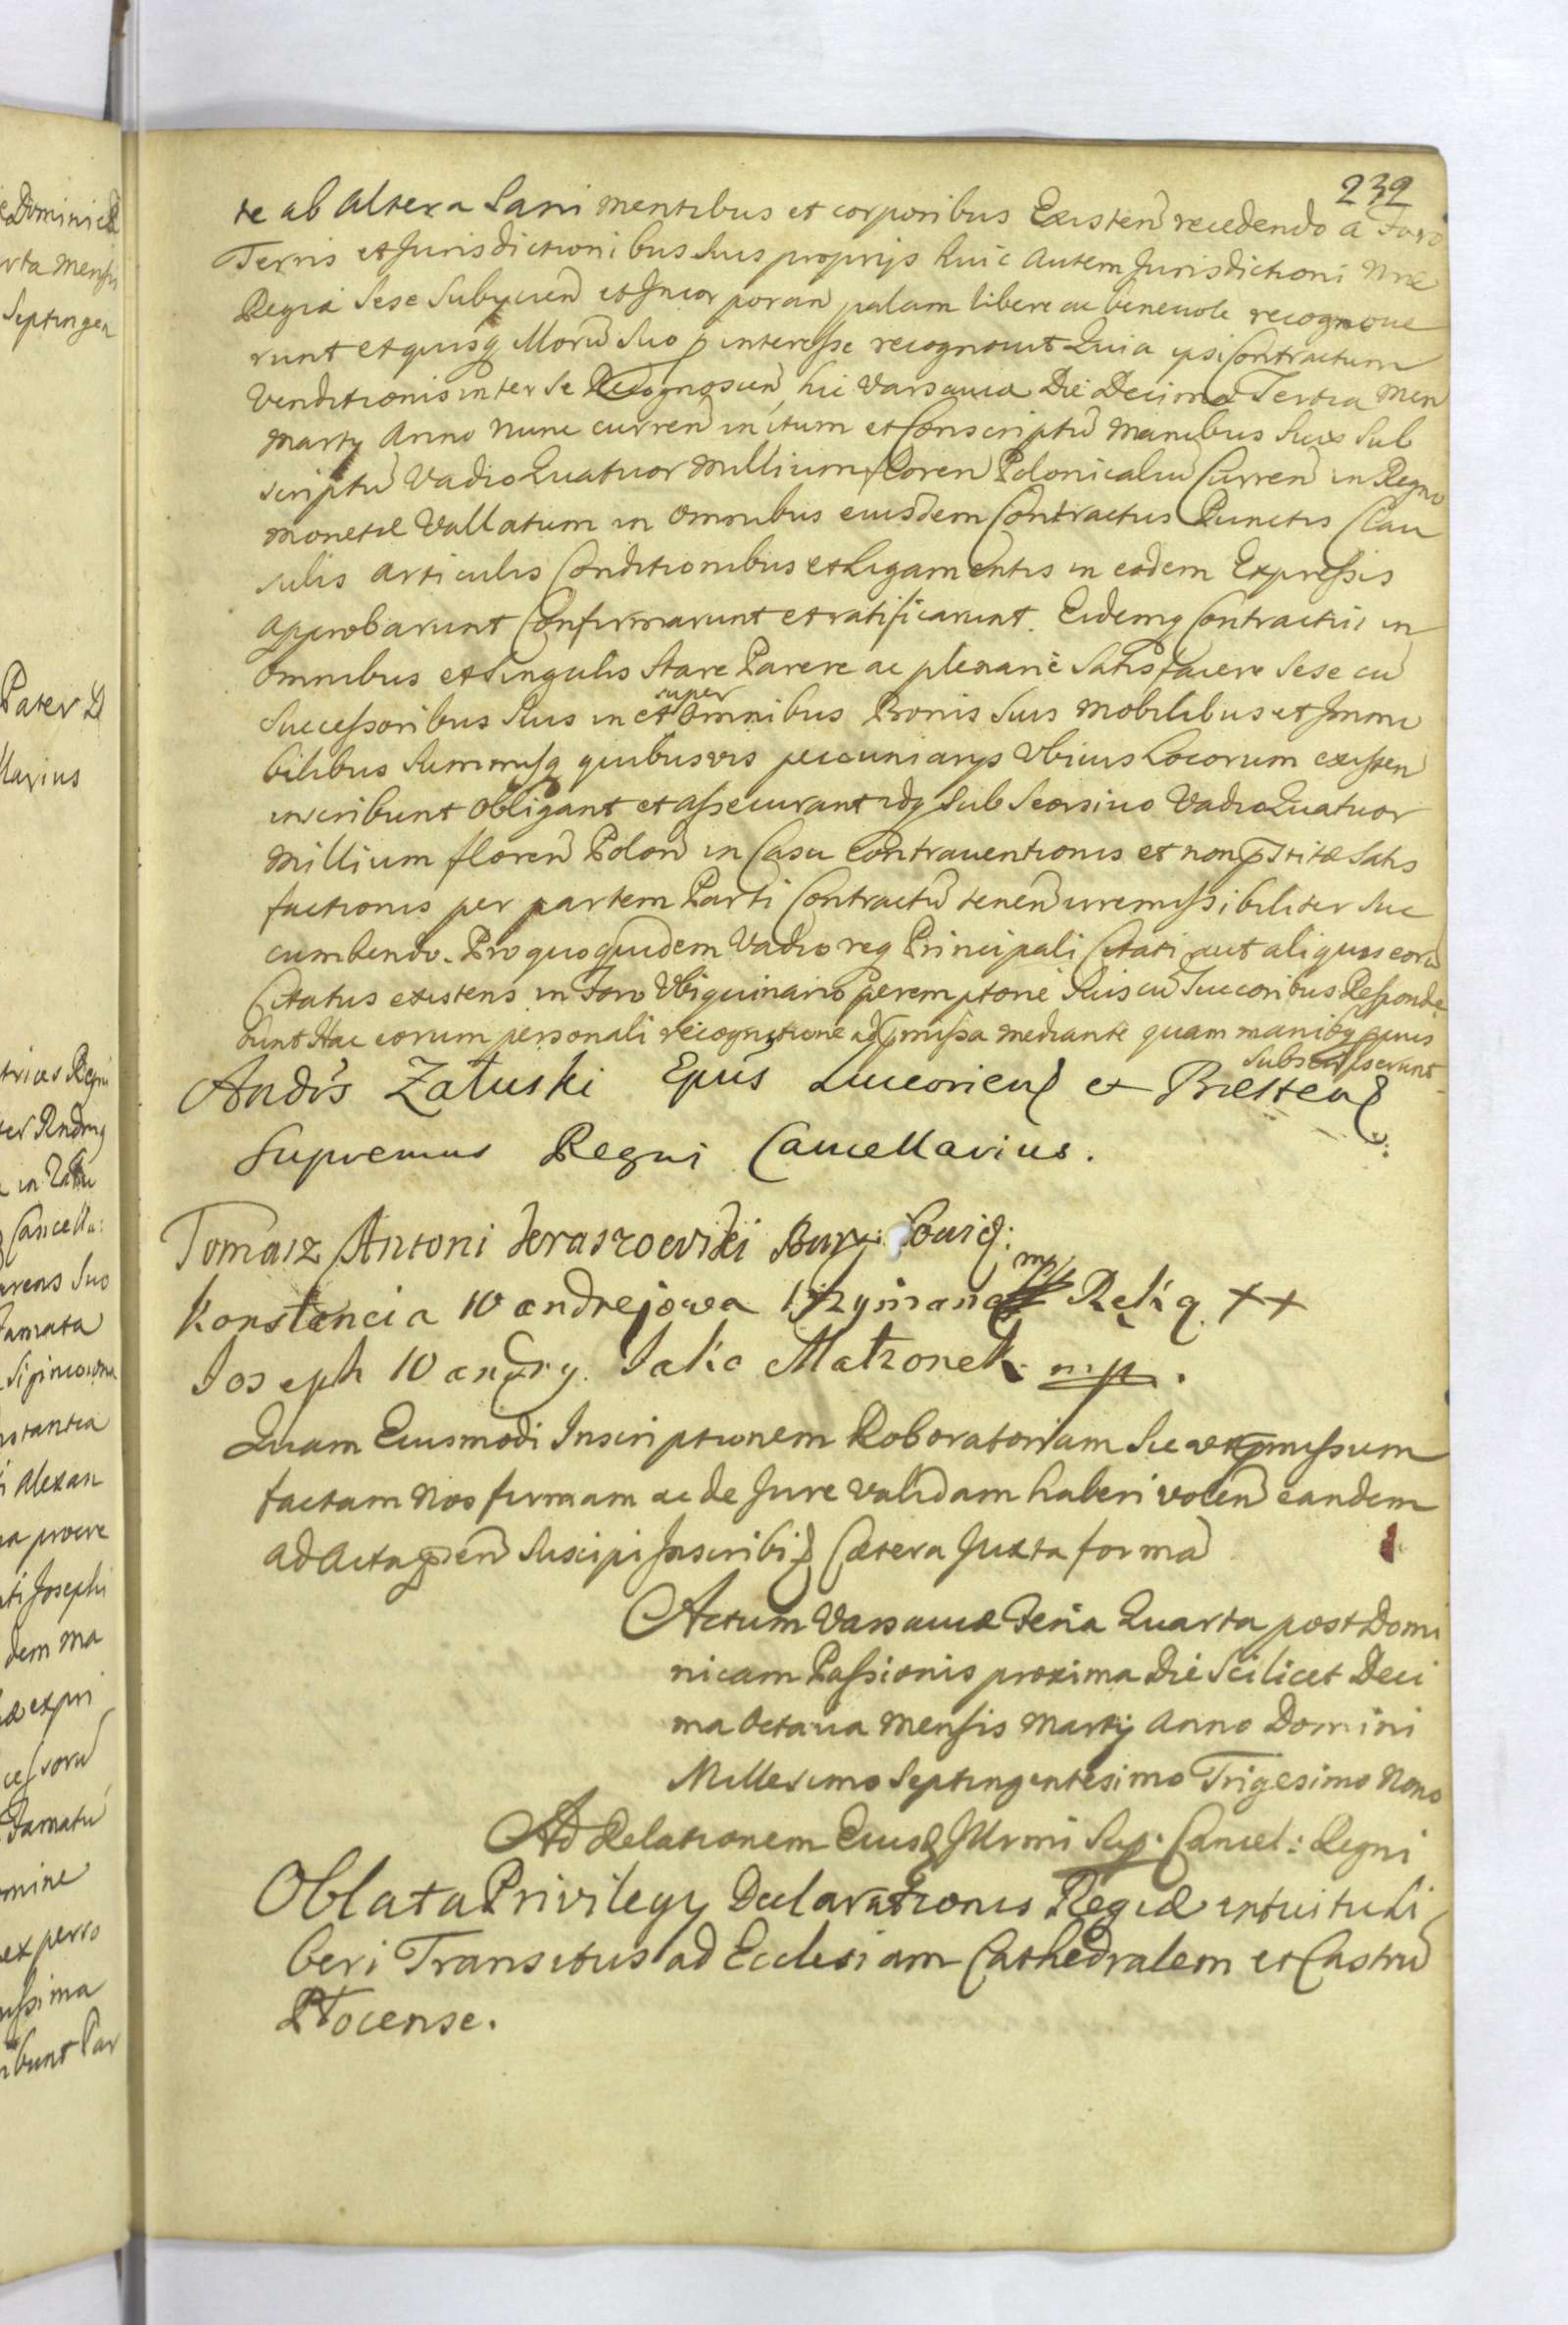 232
te ab altera Sani mentibus et corporibus Existen recedendo a Foro
Terris et Jurisdictionibus suis proprijs huic autem Jurisdictioni Nrae
Regiae sese Subycien et Incorporan palam libere ac benevole recognoue
runt et quisq Moru Suo p interesse recognouit Quia ipsi Contractum
Venditionis inter se Recognoscen hic Varsauiae Die Decima Tertia Men
Martij Anno nunc curren initum et Conscriptu Manibus Suis Sub
scriptu Vadio Quatuor Millium floren Polonicaliu Curren in Regno
monetae Vallatum in omnibus eiusdem Contractus Punctis Clau
sulis articulis Conditionibus et Ligamentis in eodem Expressis
approbarunt Confirmarunt et ratificarunt. Eidemq Contractui in
omnibus et singulis Stare Parere ac plenarie Satisfacere Sese cu
Successoribus Suis in et super omnibus Bonis Suis mobilibus et Immo
bilibus Summisq quibusvis pecuniarys Vbiuis Locorum existen
inscribunt obligant et assecurant idq Sub Seorsiuo Vadio Quatuor
Millium floren Polon in Casu Contrauentionis et non pstitae Satis
factionis per partem Parti Contractu tenen irremissibiliter Suc
cumbendo. Pro quo quidem Vadio req Principali Citati aut aliquis eoru
Citatus existens in Foro Vbiquinario peremptorie Suis cu Succoribus Responde
bunt Hac eorum personali recognitione ad pmissa mediante quam manibq suis
Subscripserunt
Andrs Załuski Epus Luceorien et Bresten
Supremus Regni Cancellarius.
Tomasz Antoni Keraszowski Burg:
Konstancia Wandrejowa mp Reliq. ++
Joseph Jako Małzonek mp.
Quam Eiusmodi Inscriptionem Roboratoriam Sic vt pmissum
factam Nos firmam ac de Jure validam haberi volen eandem
ad Acta psen Suscipi Inscribiq Caetera Juxta forma
Actum Varsauiae Feria Quarta post Domi
nicam Passionis proxima Die Scilicet Deci
ma Octaua Mensis Martij Anno Domini
Millesimo Septingentesimo Trigesimo Nono
Ad Relationem Eiusd Illrmi Sup: Cancel: Regni
Oblata Privilegy Declarationis Regiae intuitu Li
beri Transitus ad Ecclesiam Cathedralem et Castru
Plocense.